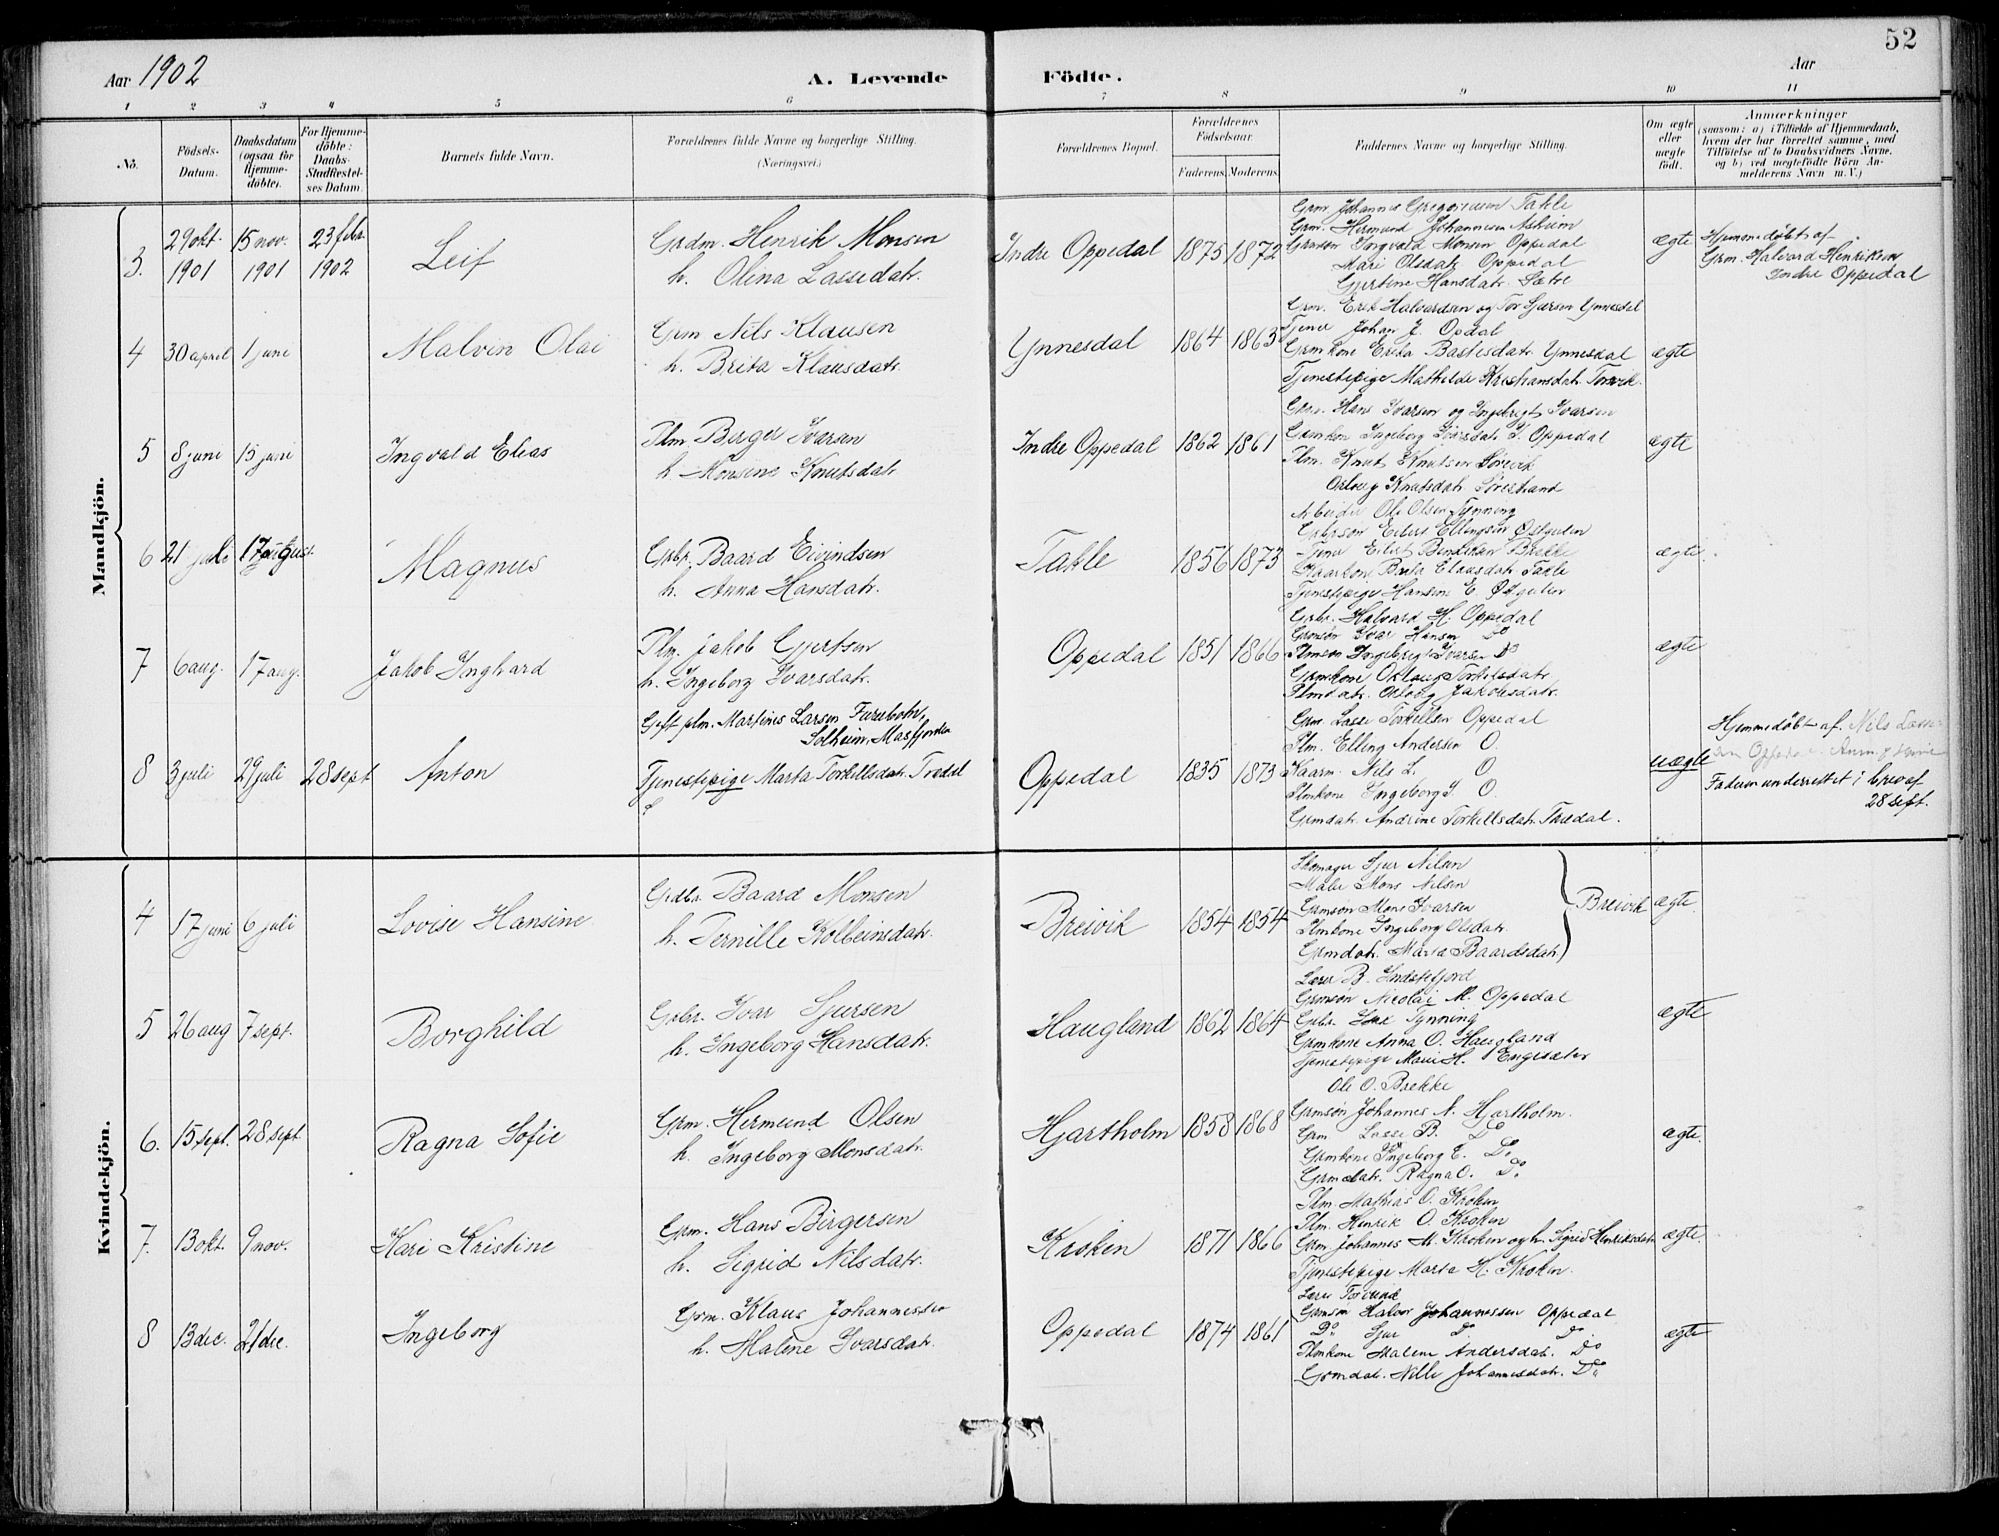 52
Aar 1902
A. Levende Födte.
Aar
1 2 3 4 5 6 7 8 9 10 11
No.
Födsels-Datum.
Daabsdatum (ogsaa for Hjemme-döbte).
For Hjemme-döbte: Daabs-Stadfæstel-ses Datum.
Barnets fulde Navn.
Forældrenes fulde Navne og borgerlige Stilling.
(Næringsvei.)
Forældrenes Bopæl.
Forældrenes Födselsaar.
Faderens. Moderens.
Faddernes Navne og borgerlige Stilling.
Om ægte eller uægte födt.
Anmærkninger
(saasom: a) i Tilfælde af Hjemmedaab,
hvem der har forrettet samme, med
Tilföielse af to Daabsvidners Navne,
og b) ved uægtefödte Börn An-
melderens Navn m. V.)
Mandkjön.
3. 29 okt. 1901 15 nov. 1901 23 febr. 1902
Leif
Grdm. Henrik Monsen
h. Olina Lassedatr.
Indre Oppedal 1875 1872
Grm. Johannes Gregoriusen Takle
Grm. Hermund Johannesen
Grmsøn Ingvald Monsen Oppedal
Mari Olsdatr. Oppedal
Gjertine Hansdatr. Sætre
ægte
Hjemmedøbt af
Grm. Halvard Henriksen
Indre Oppedal
4 30 april 1 juni
Malvin Olai
Grm Nils Klausen
h. Brita Klausdatr.
Ynnesdal 1864 1863
Grm. Erik Halvardsen og Tor Sjursen Ynnesdal
Tjener Johan J. Opdal
Grmkone Brita Bastesdatr. Ynnesdal
Tjenestepige Mathilde Kristiansdatr. Torvik.
ægte
5 8 juni 15 juni
Ingvald Elias
Plm Birger Ivarsen
h. Monsine Knutsdatr.
Indre Oppedal 1862 1861
Grm. Hans Ivarsen og Ingebrigt Ivarsen
Grmkone Ingeborg Ivarsdatr. I. Oppedal
Plm. Knut Knutsen Sørevik
Oslaug Knutsdatr. Sørestrand
ægte
6 21 jule 17 august.
Magnus
Grbr. Baard Eivindsen
h. Anna Hansdatr.
Takle 1856 1873
Arbeider Ole Olsen Tynning
Gabrsøn Eilert Ellingsen Østgulen
Tjener Eilert Bendiksen Brekke
Kaarkone Brita Elausdatr. Takle
Tjenestepige Hansine E. Østgulen
ægte.
7 6 aug. 17 aug.
Jakob Inghard
Plm. Jakob Gjertsen
h. Ingeborg Ivarsdatr.
Oppedal 1851 1866
Grbr. Halvard H. Oppedal
Grmsøn Ivar Hansen Do
Plmsøn Ingebrigt Ivarsen Do
Grmkone Oslaug Torkelsdatr.
Plmdatr. Oslaug Jakobsdatr.
ægte
8 3 juli 29 juli 28 sept
Anton
Gift plm. Martines Larsen Furebotn,
Solheim, Masfjorden
Tjenestepige Marta Torkillsdatr. Trædal
Oppedal 1835 1873
Grm. Lasse Torkillsen Oppedal
Plm. Elling Andersen O.
Kaarm. Nils L. O
Plmkone Ingeborg I. O.
Grmdatr. Andrine Torkillsdatr. Trædal.
uægte
Hjemmedøbt af Nils Lasse-
sen Oppedal.
Faderen underrettet i brev af
28 sept.
Kvindekjön.
4 17 juni 6 juli
Lovise Hansine
Grdbr. Baard Monsen
h. Pernille Kolbeinsdatr.
Breivik 1854 1854
Skomager Sjur Nilsen
Maler Mons Nilsen
Grmsøn Mons Ivarsen
Plmkone Ingeborg Olsdatr.
Grmdatr. Marta Baardsdatr.
Breivik
ægte
5 26 aug 7 sept.
Borghild
Grbr. Ivar Sjursen
h. Ingeborg Hansdatr.
Haugland 1862 1864
Lærer B. Indstefjord
Grmsøn Nicolai M. Oppedal
Grbr. Tynning
Grmkone Anna O. Haugland
Tjenestepige Mari H. Engesæter
ægte
6. 15 sept. 28 sept
Ragna Sofie
Grm. Hermund Olsen
h. Ingeborg Monsdatr.
Hjartholm 1858 1868
Ole O. Brekke
Grmsøn Johannes N. Hjartholm.
Grm Lasse B. Do
Grmkone Ingeborg E. Do
Grmdatr. Ragna O. Do
ægte.
7. 13 okt. 9 nov.
Kari Kristine
Grm. Hans Birgersen
h. Sigrid Nilsdatr.
Kroken 1871 1866
Plm Mathias O. Kroken
Plm. Henrik O. Kroken
Grm Johannes M. Kroken og h. Sigrid Henriksdatr
Tjenestepige Marta H. Kroken.
ægte.
8 13 dec. 21 dec.
Ingeborg
Grm. Klaus Johannessen
h. Malene Ivarsdatr.
Oppedal 1874 1861
Lærer Torvund
Grmsøn Halvor Johannessen Oppedal
Do Sjur Do Do
Plmkone Malene Andersdatr. Do
Grmdatr. Nille Johannesdatr. Do
ægte